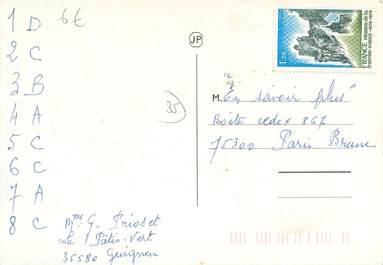 1 D 6€
2 C
3 B
4 A
5 C
6 C
7 A
8 C
Mme G. Prioset
Le Pâtis-Vert
35580 Guignen
JP
35
1,20
FRANCE
M. "En savoir plus"
Boîte cedex 867
75300 Paris Brune